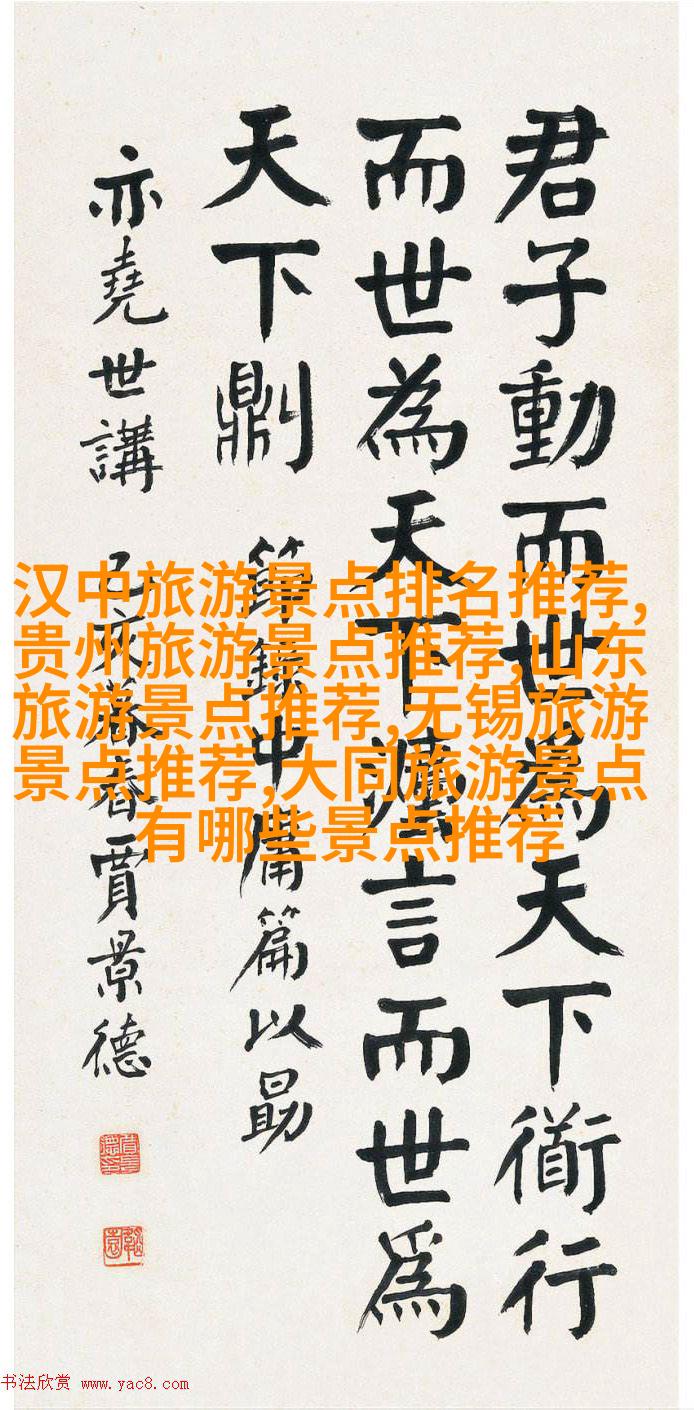 君子動而世為天下衜行
而世為天下灋言而世爲
天下則
節錄中庸篇以勗
亦堯世講 暮春賈景德
汉中旅游景点排名推荐,
贵州旅游景点推荐,山东
旅游景点推荐,无锡旅游
景点推荐,大同旅游景点
有哪些景点推荐
书法欣赏 www.yac8.com